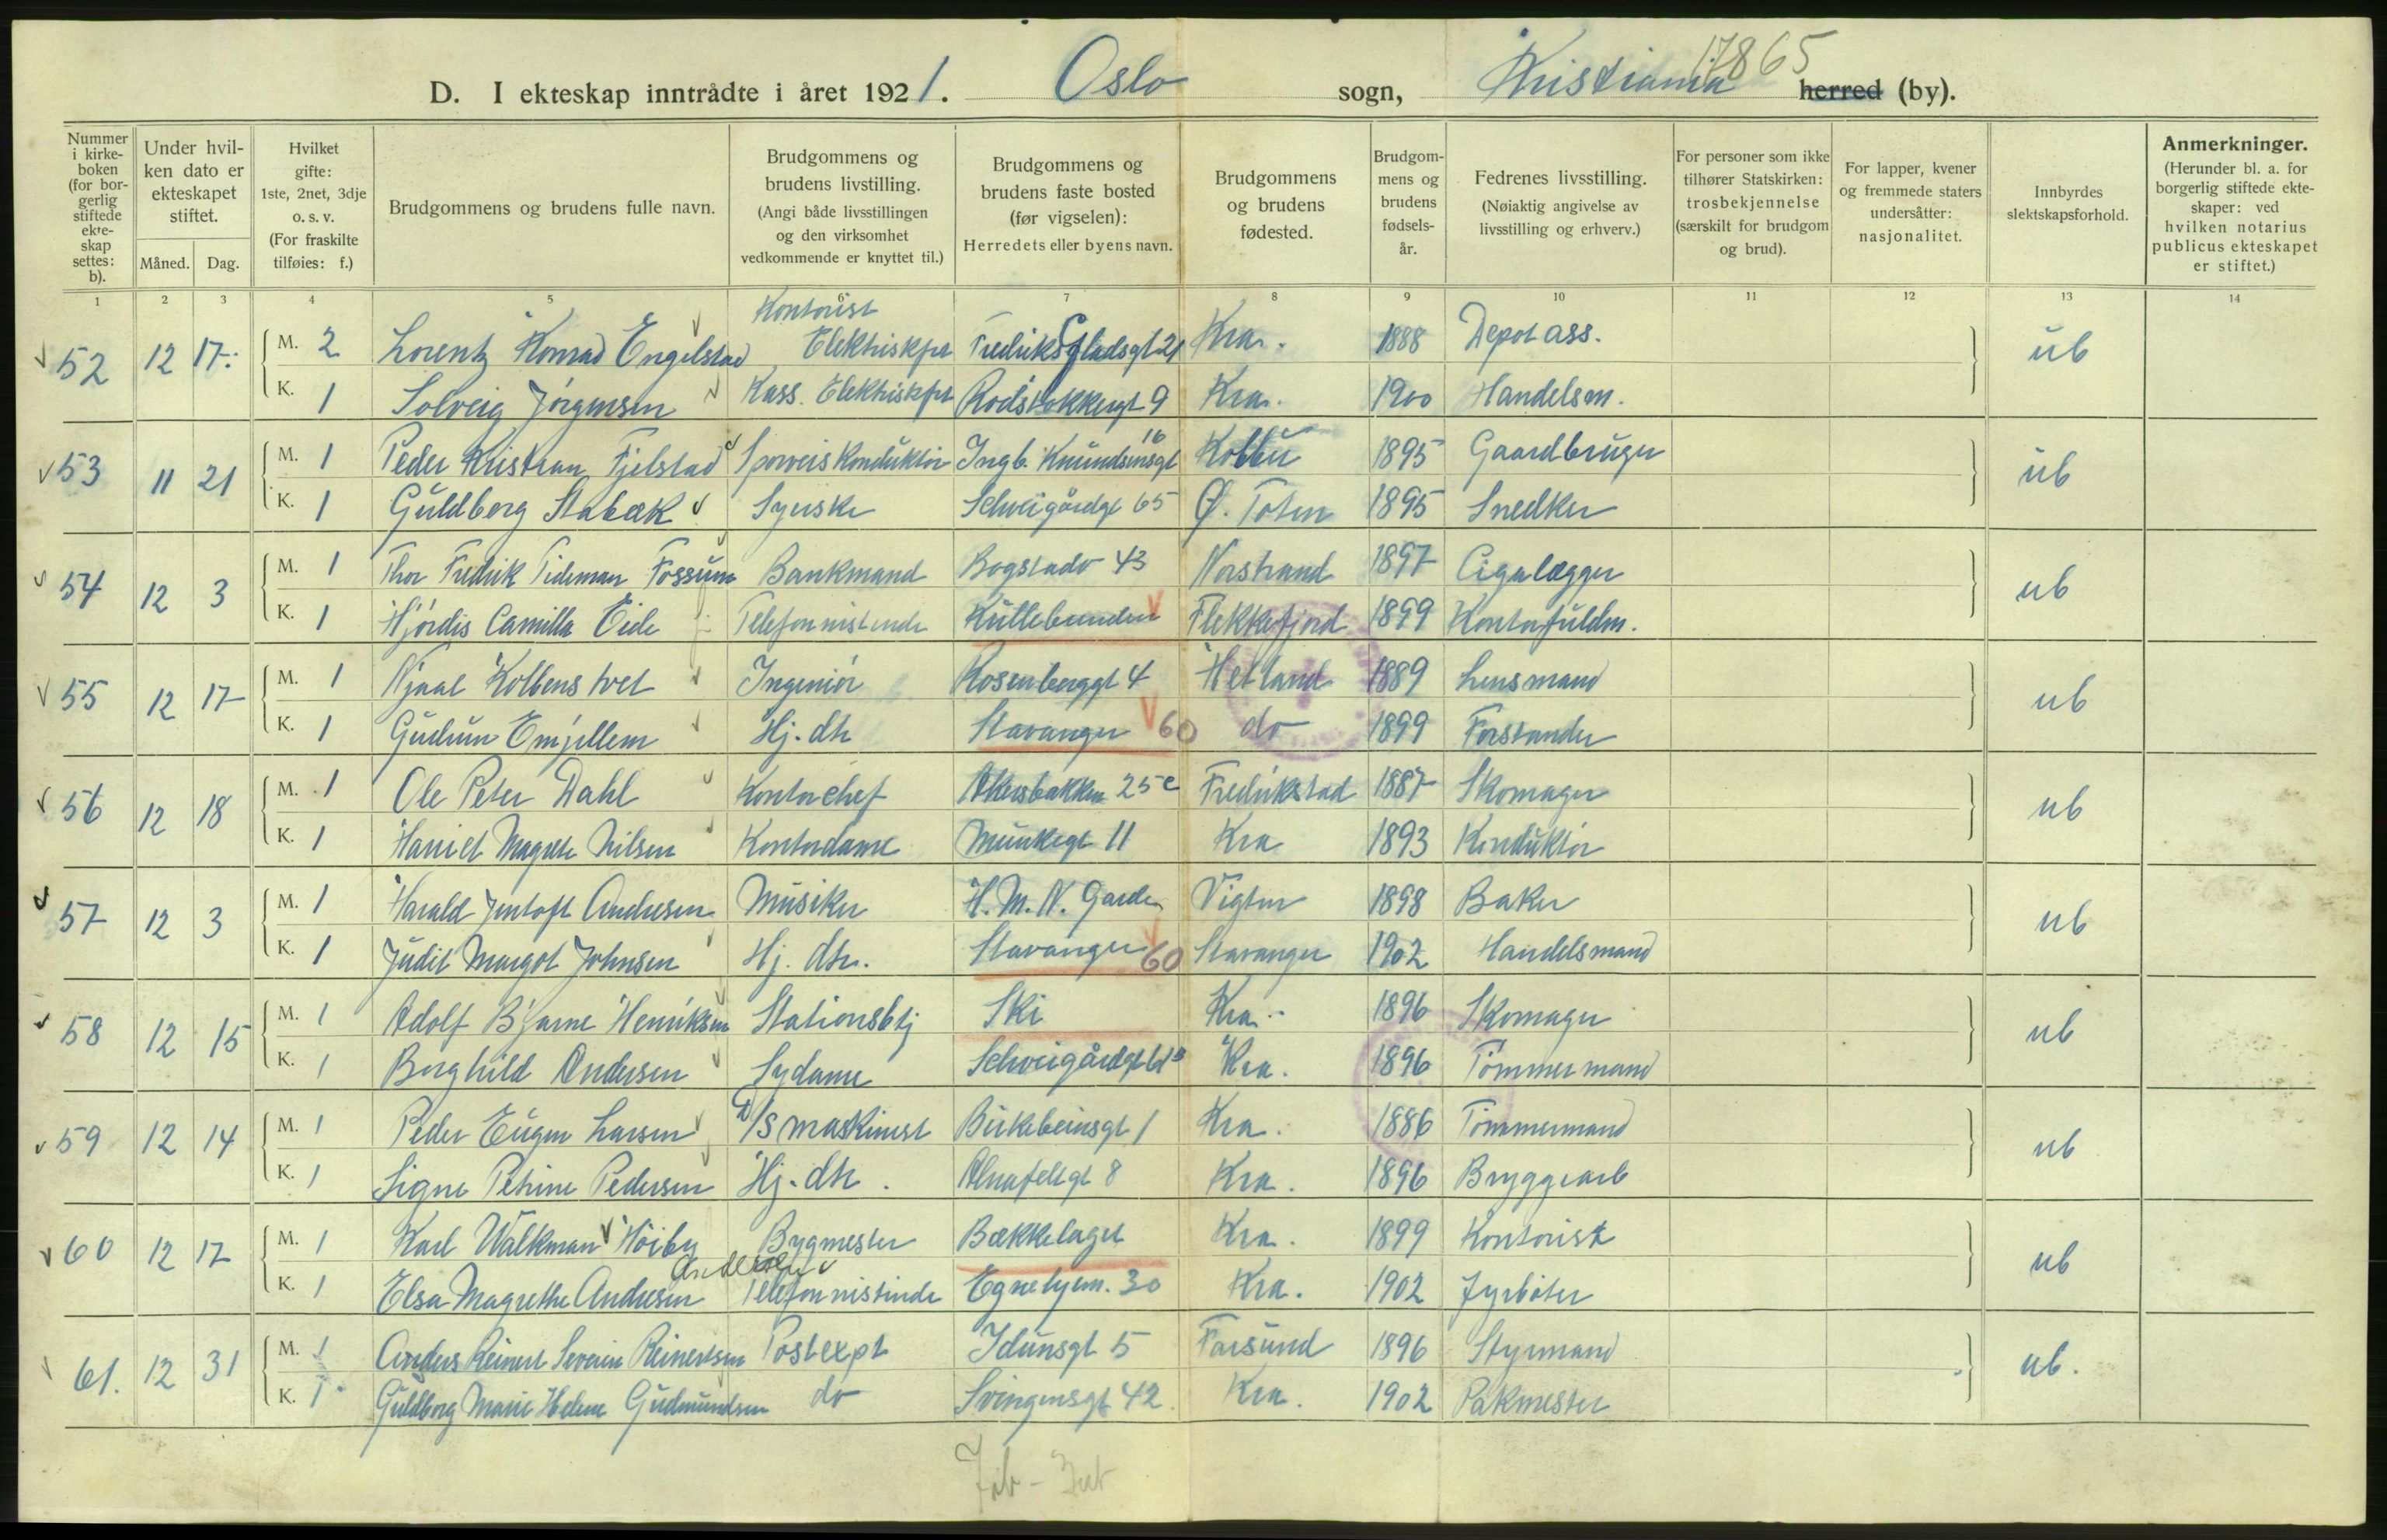 17865
D. I ekteskap inntrådte i året 1921. Oslo sogn, Kristiania herred (by).
Nummer i kirke-boken (for bor-gerlig stiftede ekte-skap settes: b).
Under hvil-ken dato er ekteskapet stiftet.
Måned. Dag.
Hvilket gifte: 1ste, 2net, 3dje o. s. v. (For fraskilte tilføies: f.)
Brudgommens og brudens fulle navn.
Brudgommens og brudens livstilling. (Angi både livsstillingen og den virksomhet vedkommende er knyttet til.)
Brudgommens og brudens faste bosted (før vigselen): Herredets eller byens navn.
Brudgommens og brudens fødested.
Brudgom-mens og brudens fødsels-år.
Fedrenes livsstilling. (Nøiaktig angivelse av livsstilling og erhverv.)
For personer som ikke tilhører Statskirken: trosbekjennelse (særskilt for brudgom og brud).
For lapper, kvener og fremmede staters undersåtter: nasjonalitet.
Innbyrdes slektskapsforhold.
Anmerkninger. (Herunder bl. a. for borgerlig stiftede ekte-skaper: ved hvilken notarius publicus ekteskapet er stiftet.)
1 2 3 4 5 6 7 8 9 10 11 12 13 14
52 12 17. M. 2 Lorentz Konrad Engelstad Kontorist Elektriskfor Fredrikstadsgt 21 Kra. 1888 Depot ass. ub
K. 1 Solveig Jörgensen Kass. Elektriskfor Rodeløkkengt 9 Kra. 1900 Handelsm.
53 11 21 M. 1 Peder Kristian Fjelstad Sporveiskonduktör Ingb. Knudsensgt 16 Kolbu 1895 Gaardbruger ub
K. 1 Guldborg Stabæk Syerske Schweigårdgt 65 Ø. Toten 1895 Snedker
54 12 3 M. 1 Thor Fredrik Tideman Fossum Bankmand Bogstadv 43 Norstrand 1897 Cigalægger ub
K. 1 Hjördis Camilla Eide Telefonnistinde Kullebunden Flekkefjord 1899 Kontorfuldm.
55 12 17 M. 1 Njaal Kolbenstvet Ingeniör Rosenberggt 4 Hetland 1889 Lensmand ub
K. 1 Gudrun Emjellem Hj. dtr Stavanger 60 do 1899 Forstander
56 12 18 M. 1 Ole Peter Dahl Kontorchef Akersbakken 25 c Fredrikstad 1887 Skomager ub
K. 1 Harriet Magrete Nilsen Kontordame Munkegt 11 Kra 1893 Konduktör
57 12 3 M. 1 Harald Jentoft Andresen Musiker H. M. N. Garde Vigten 1898 Baker ub
K. 1 Judit Margot Johnsen Hj. dtr. Stavanger 60 Stavanger 1902 Handelsmand
58 12 15 M. 1 Adolf Bjarne Henriksen Stationsbtj Ski Kra. 1896 Skomager ub
K. 1 Borghild Andersen Sydame Schweigårdgt Kra. 1896 Tömmermand
59 12 14 M. 1 Peder Eugen Larsen D/S maskinist Birkebeinsgt 1 Kra. 1886 Tömmermand ub
K. 1 Signe Petrine Pedersen Hj. dtr. Alnafeltgt 8 Kra. 1896 Bryggearb
60 12 17 M. 1 Karl Walkman Höiby Bygmester Bækkelaget Kra. 1899 Kontorist ub
Andersen
K. 1 Elsa Magrethe Andresen Telefonnistinde Egnehjem. 30 Kra. 1902 Fyrböter
61. 12 31 M. 1 Anders Reinert Severin Reinertsen Postexpt Idunsgt 5 Farsund 1896 Styrmand ub.
K. 1 Guldborg Marie Helene Gudmundsen do Svingensgt 42 Kra. 1902 Pakmester